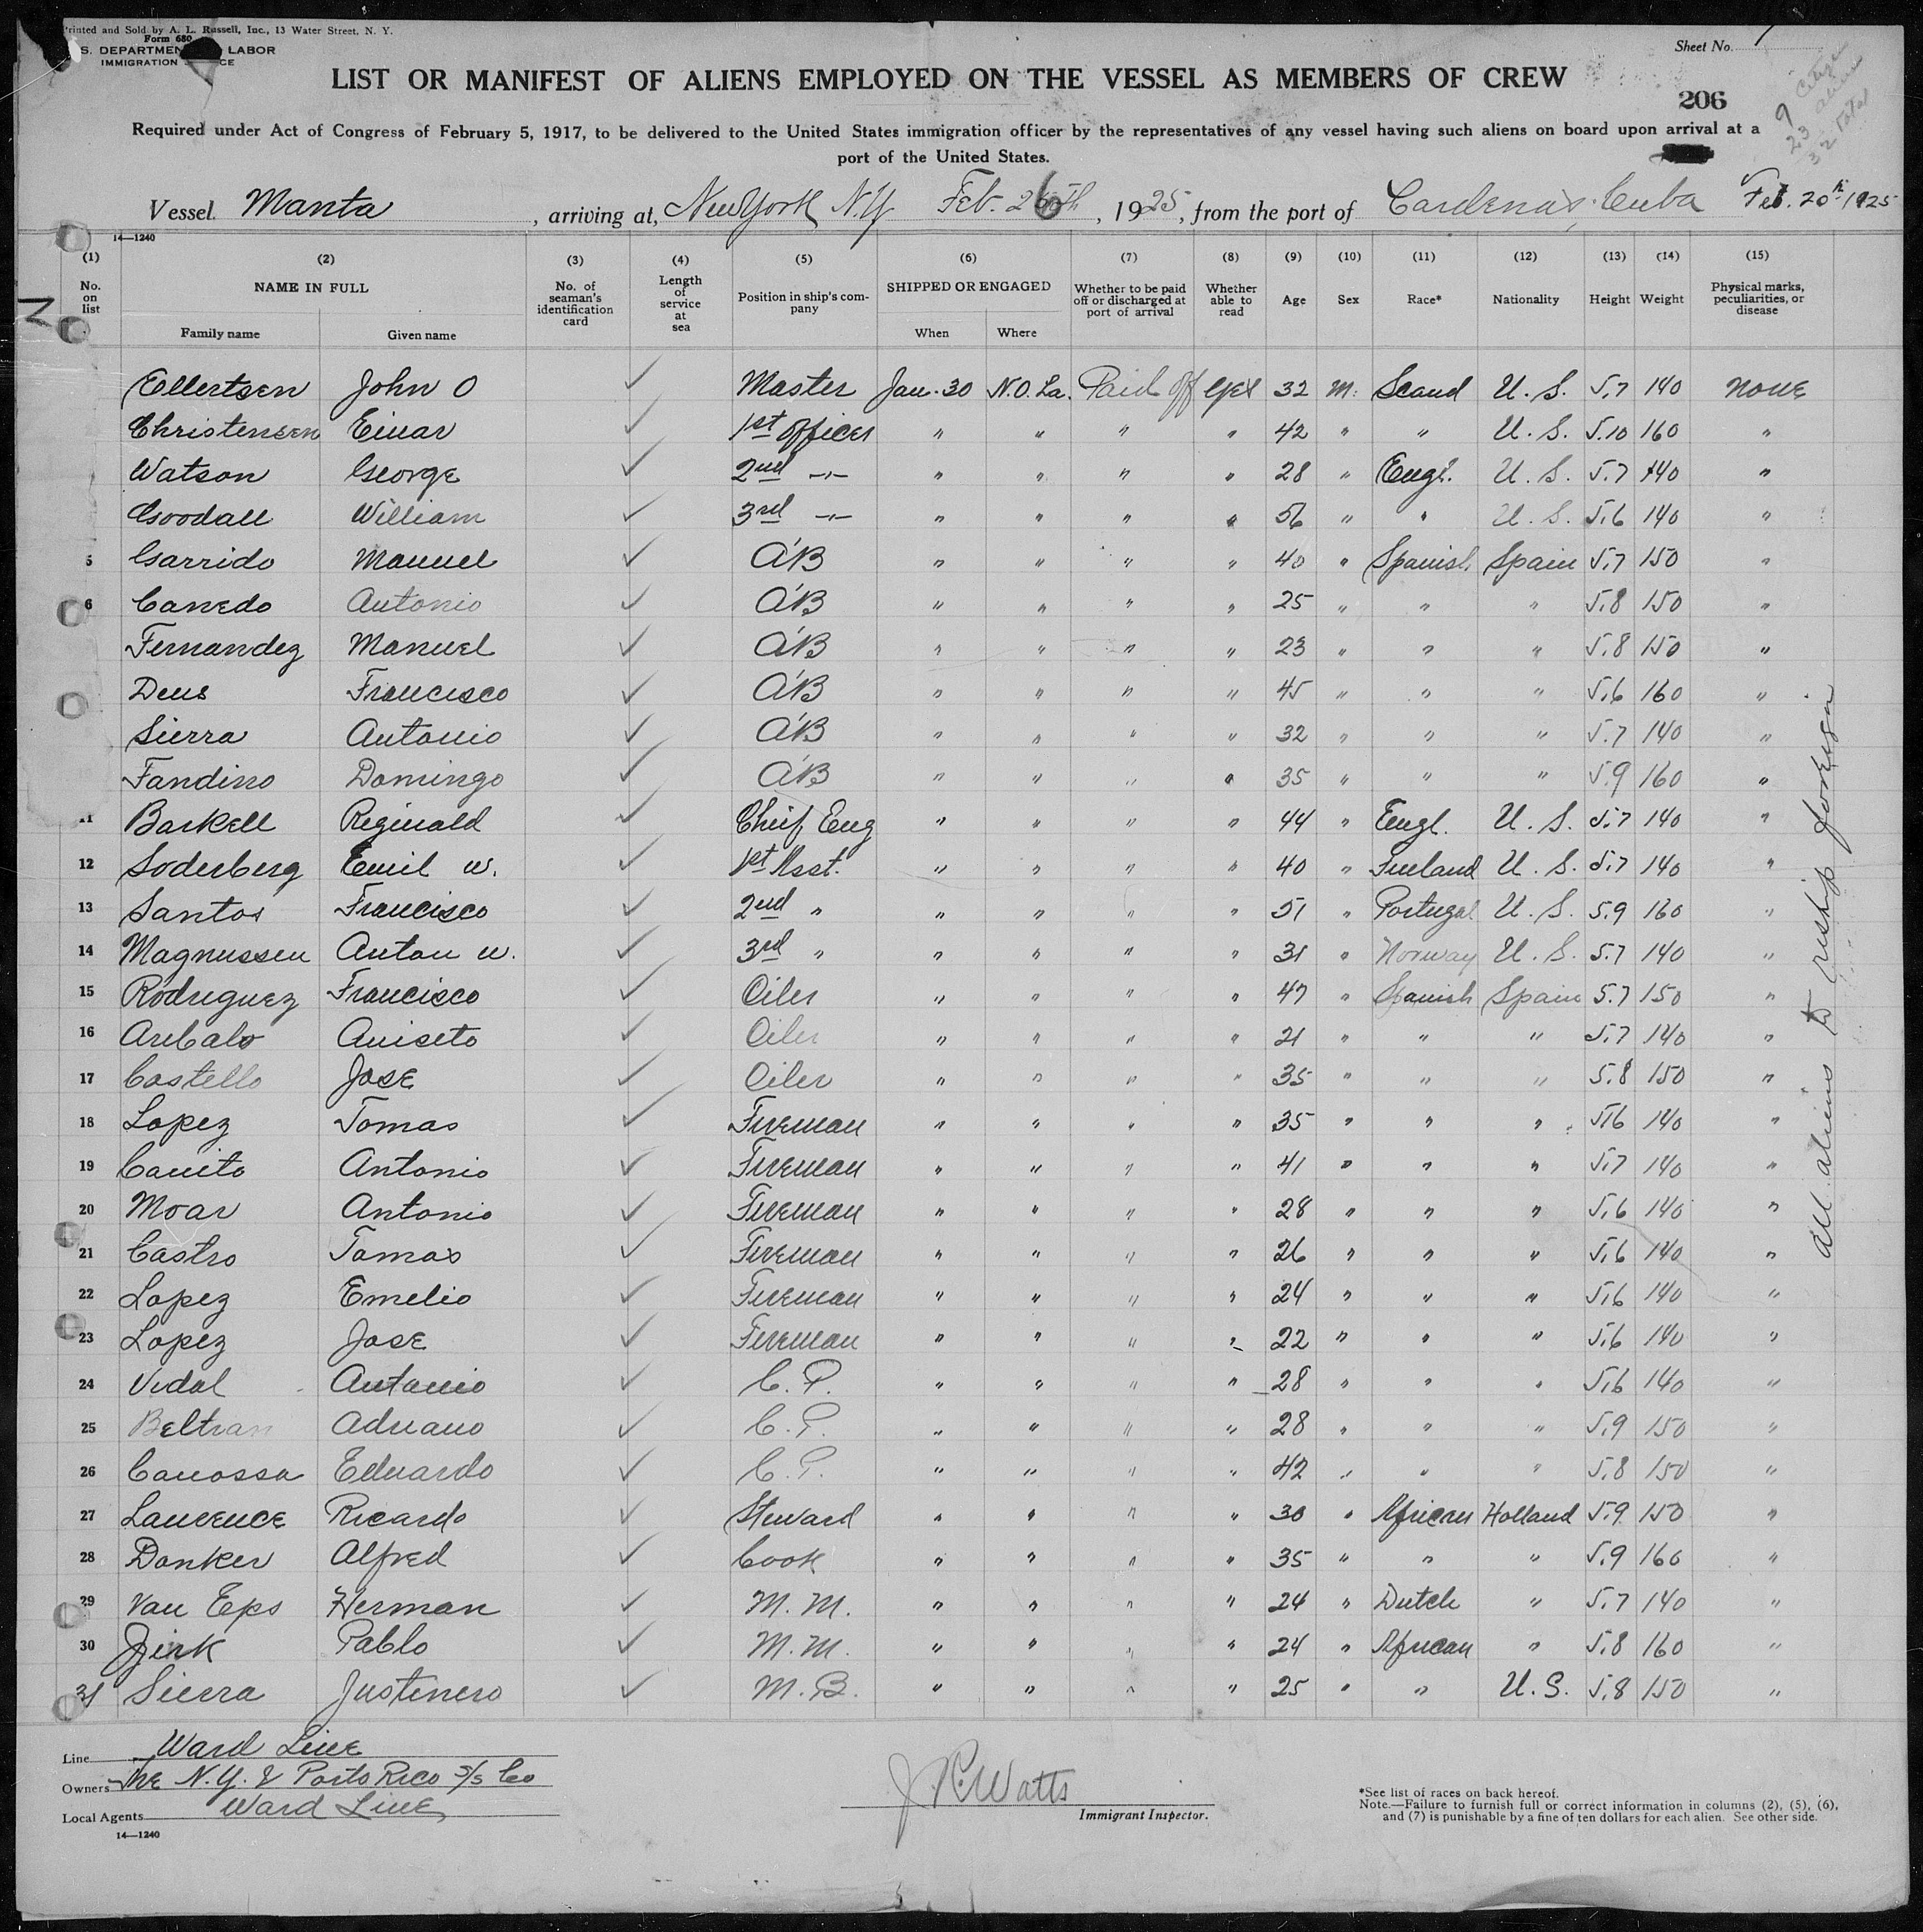 Printed and Sold by A. L. Russell, Inc., 13 Water Street, N. Y.
Form 680
S. DEPARTMEN LABOR
IMMIGRATION CE
Sheet No. 1
LIST OR MANIFEST OF ALIENS EMPLOYED ON THE VESSEL AS MEMBERS OF CREW
206
9 citizen
23 aliens
32 total
Required under Act of Congress of February 5, 1917, to be delivered to the United States immigration officer by the representatives of any vessel having such aliens on board upon arrival at a
port of the United States.
Vessel Manta, arriving at, New York N.Y. Feb. 26th, 1925, from the port of Cardenas, Cuba Feb. 20th 1925
14—1240
(1) (2) (3) (4) (5) (6) (7) (8) (9) (10) (11) (12) (13) (14) (15)
No. on list NAME IN FULL Family name Given name No. of seaman's identification card Length of service at sea Position in ship's company SHIPPED OR ENGAGED When Where Whether to be paid off or discharged at port of arrival Whether able to read Age Sex Race* Nationality Height Weight Physical marks, peculiarities, or disease
Ellertsen John O ✓ Master Jan. 30 N.O. La. Paid off yes 32 M. Scand U. S. 5.7 140 None
Christensen Einar ✓ 1st officer " " " " 42 " " U. S. 5.10 160 "
Watson George ✓ 2nd -"- " " " " 28 " Engl. U. S. 5.7 140 "
Goodall William ✓ 3rd -"- " " " " 56 " " U. S. 5.6 140 "
5 Garrido Manuel ✓ A'B " " " " 40 " Spanish Spain 5.7 150 "
6 Canedo Antonio ✓ A'B " " " " 25 " " " 5.8 150 "
Fernandez Manuel ✓ A'B " " " " 23 " " " 5.8 150 "
Deus Francisco ✓ A'B " " " " 45 " " " 5.6 160 "
Sierra Antonio ✓ A'B " " " " 32 " " " 5.7 140 "
Fandino Domingo ✓ A'B " " " " 35 " " " 5.9 160 "
11 Barkell Reginald ✓ Chief Eng " " " " 44 " Engl. U. S. 5.7 140 "
12 Soderberg Emil W. ✓ 1st Asst. " " " " 40 " Finland U. S. 5.7 140 "
13 Santos Francisco ✓ 2nd " " " " " 51 " Portugal U. S. 5.9 160 "
14 Magnussen Anton W. ✓ 3rd " " " " " 31 " Norway U. S. 5.7 140 "
15 Rodriguez Francisco ✓ Oiler " " " " 47 " Spanish Spain 5.7 150 "
16 Arebalo Aniseto ✓ Oiler " " " " 21 " " " 5.7 140 "
17 Costello Jose ✓ Oiler " " " " 35 " " " 5.8 150 "
18 Lopez Tomas ✓ Fireman " " " " 35 " " " 5.6 140 "
19 Canito Antonio ✓ Fireman " " " " 41 " " " 5.7 140 "
20 Moar Antonio ✓ Fireman " " " " 28 " " " 5.6 140 "
21 Castro Tomas ✓ Fireman " " " " 26 " " " 5.6 140 "
22 Lopez Emelio ✓ Fireman " " " " 24 " " " 5.6 140 "
23 Lopez Jose ✓ Fireman " " " " 22 " " " 5.6 140 "
24 Vidal Antonio ✓ C. P. " " " " 28 " " " 5.6 140 "
25 Beltran Adriano ✓ C. P. " " " " 28 " " " 5.9 150 "
26 Canossa Eduardo ✓ C. P. " " " " 42 " " " 5.8 150 "
27 Laurence Ricardo ✓ Steward " " " " 30 " African Holland 5.9 150 "
28 Donker Alfred ✓ Cook " " " " 35 " " " 5.9 160 "
29 Van Eps Herman ✓ M. M. " " " " 24 " Dutch " 5.7 140 "
30 Jirk Pablo ✓ M. M. " " " " 24 " African " 5.8 160 "
31 Sierra Justinero ✓ M. B. " " " " 25 " " U. S. 5.8 150 "
All aliens to reship foreign
Line Ward Line
Owners The N.Y. & Porto Rico S/S Co
Local Agents Ward Line
14—1240
Watts
Immigrant Inspector.
*See list of races on back hereof.
Note.—Failure to furnish full or correct information in columns (2), (5), (6),
and (7) is punishable by a fine of ten dollars for each alien. See other side.